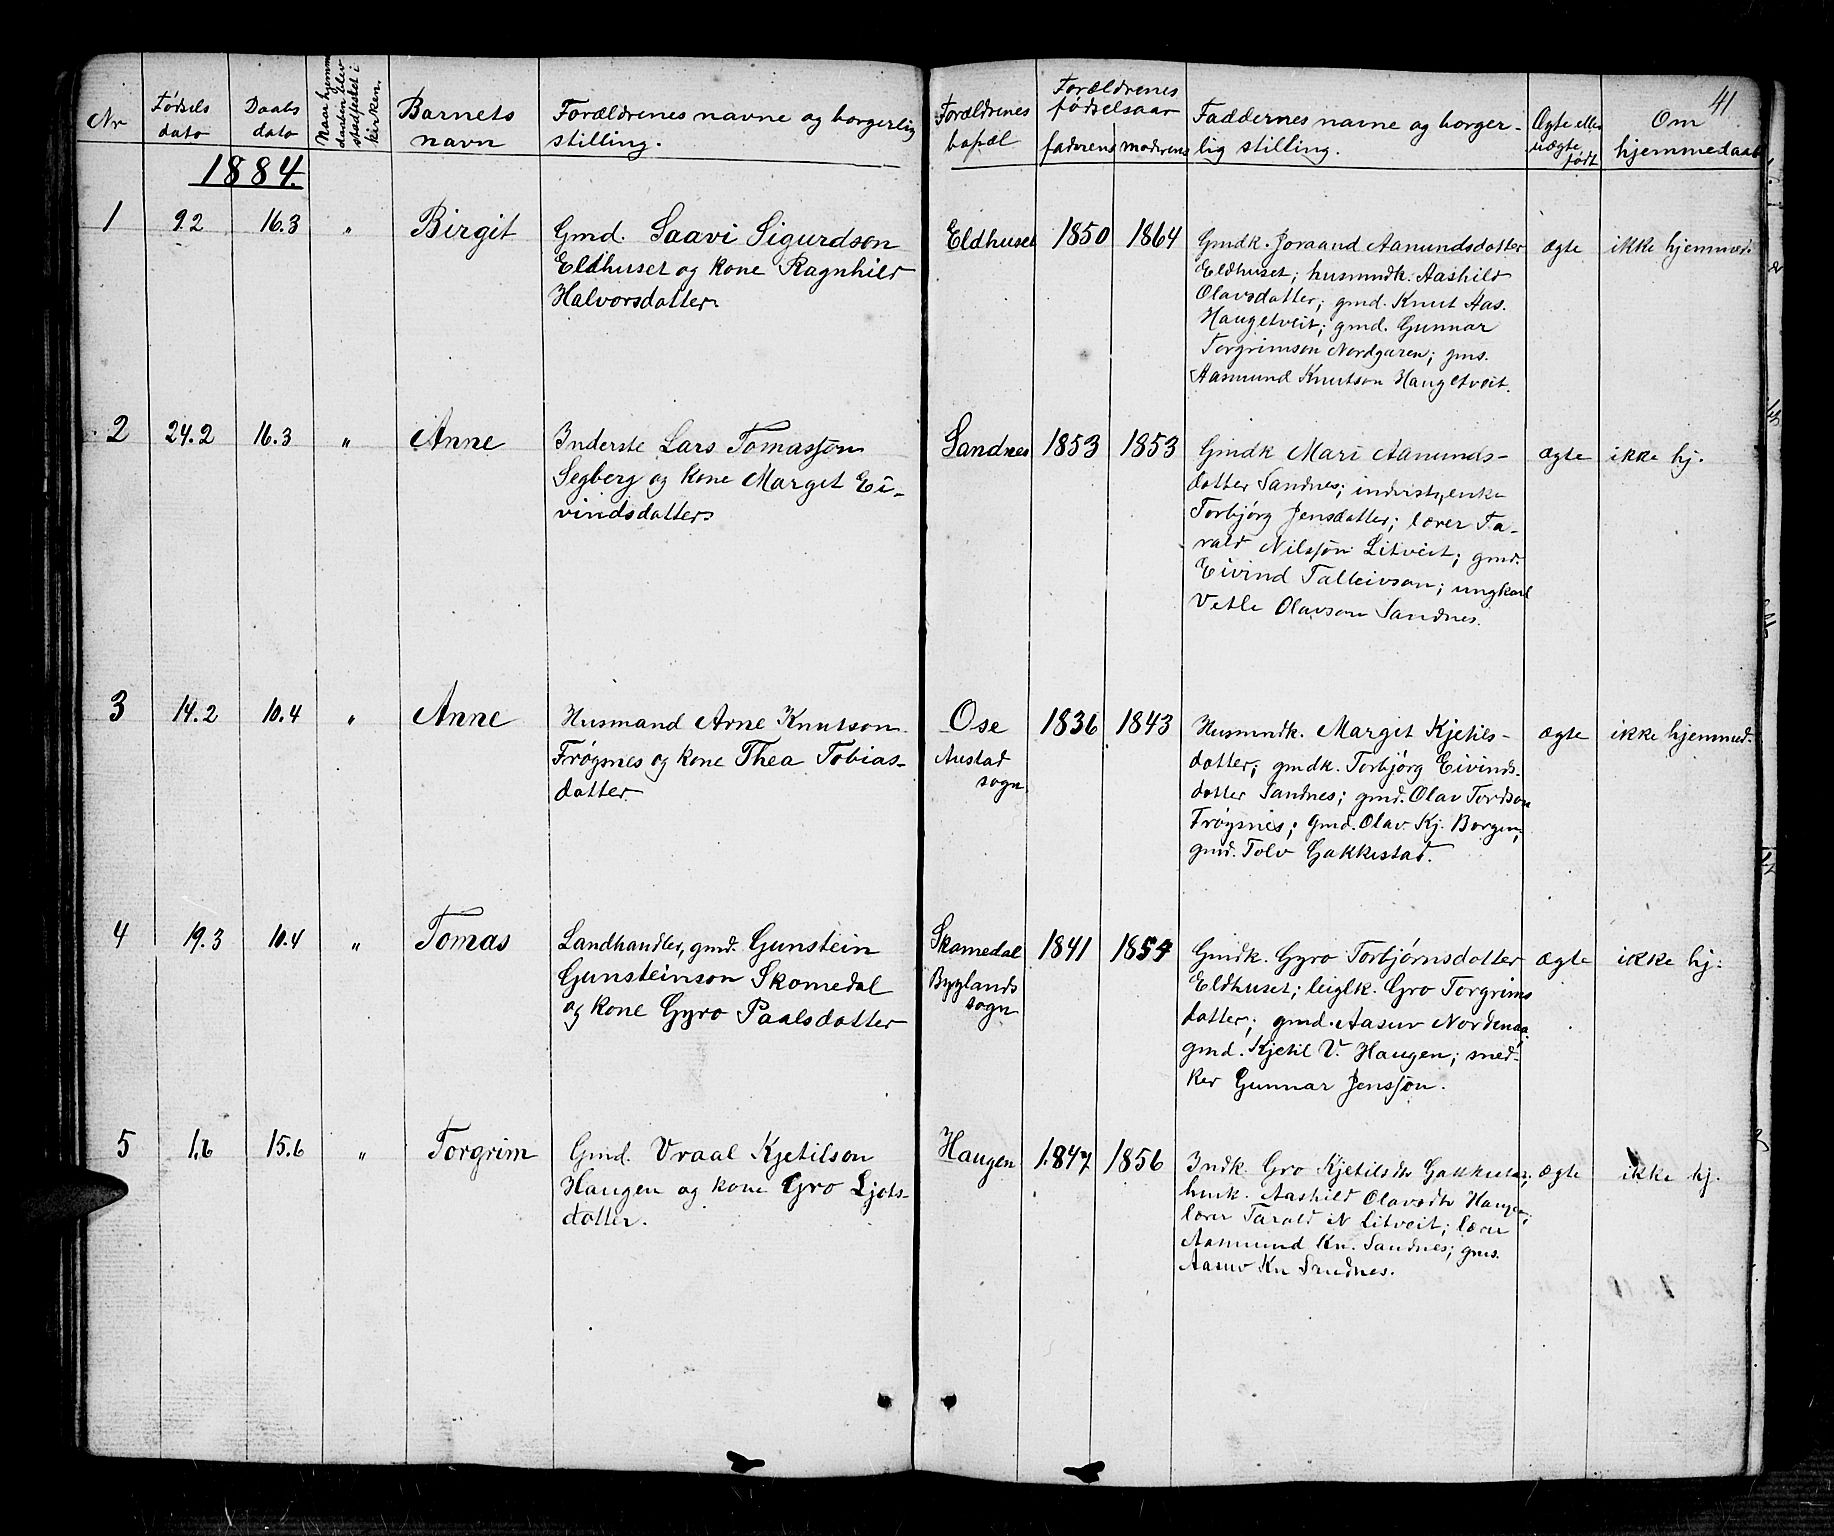 41
Nr
Fødsels dato
Daabs dato
Naar hjemmedaaben blev stadfæstet i kirken.
Barnets navn
Forældrenes navne og borgerlig stilling.
Forældrenes bopæl
Forældrenes fødselsaar
faderens
moderens
Faddernes navne og borger-
lig stilling.
Ægte eller uægte født
Om hjemmedaab
1884.
1 9.2 16.3 " Birgit
Gmd. Saavi Sigurdson
Eldhuset og kone Ragnhild
Halvorsdatter
Eldhuset 1850 1864
Gmdk. Joraand Aamundsdatter
Eldhuset; husmndk. Aashild
Olavsdatter; gmd. Knut Aas.
Haugetveit; gmd. Gunnar
Torgrimson Nordgaren; gms.
Aasmund Knutson Haugetveit.
ægte ikke hjemmed.
2 24.2 16.3 " Anne
Inderste Lars Tomasson
Segberg og kone Margit Ei-
vindsdatter
Sandnes 1853 1853
Gmdk Mari Aamunds-
datter Sandnes; indersts,enke
Torbjörg Jensdatter; lærer Ta-
rald Nilssön Litveit; gmd.
Eivind Talleivson; ungkarl
Vetle Olavson Sandnes.
ægte ikke hj.
3 14.2 10.4 " Anne
Husmand Arne Knutson
Frøysnes og kone Thea Tobias-
datter.
Ose
Austad
sogn
1836 1843
Husmndk. Margit Kjetils-
datter; gmdk. Torbjörg Eivinds-
datter Sandnes; gmd. Olav Tordson
Frøysnes; gmd. Olav Kj. Borgen;
gmd. Tolv Gakkestad.
ægte ikke hjemmed.
4 19.3 10.4 " Tomas
Landhandler, gmd. Gunstein
Gunsteinson Skomedal
og kone Gyro Paalsdatter
Skomedal
Byglands
sogn
1841 1854
Gmdk. Gyro Torbjørnsdatter
Eldhuset; leiglk. Gro Torgrims
datter; gmd. Aasuv Nordenaa
gmd. Kjetil V. Haugen; sned-
ker Gunnar Jensson.
ægte ikke hj.
5 1.6 15.6 " Torgrim
Gmd. Vraal Kjetilson
Haugen og kone Gro Ljots-
datter.
Haugen 1847 1856
Indk. Gro Kjetilsdtr Gakkestad;
husk. Aashild Olavsdtr Haugen;
lærer Tarald N Litveit; lærer
Aasmund Kn. Sandnes; gms.
Aasuv Kn Sandnes.
ægte ikke hj.